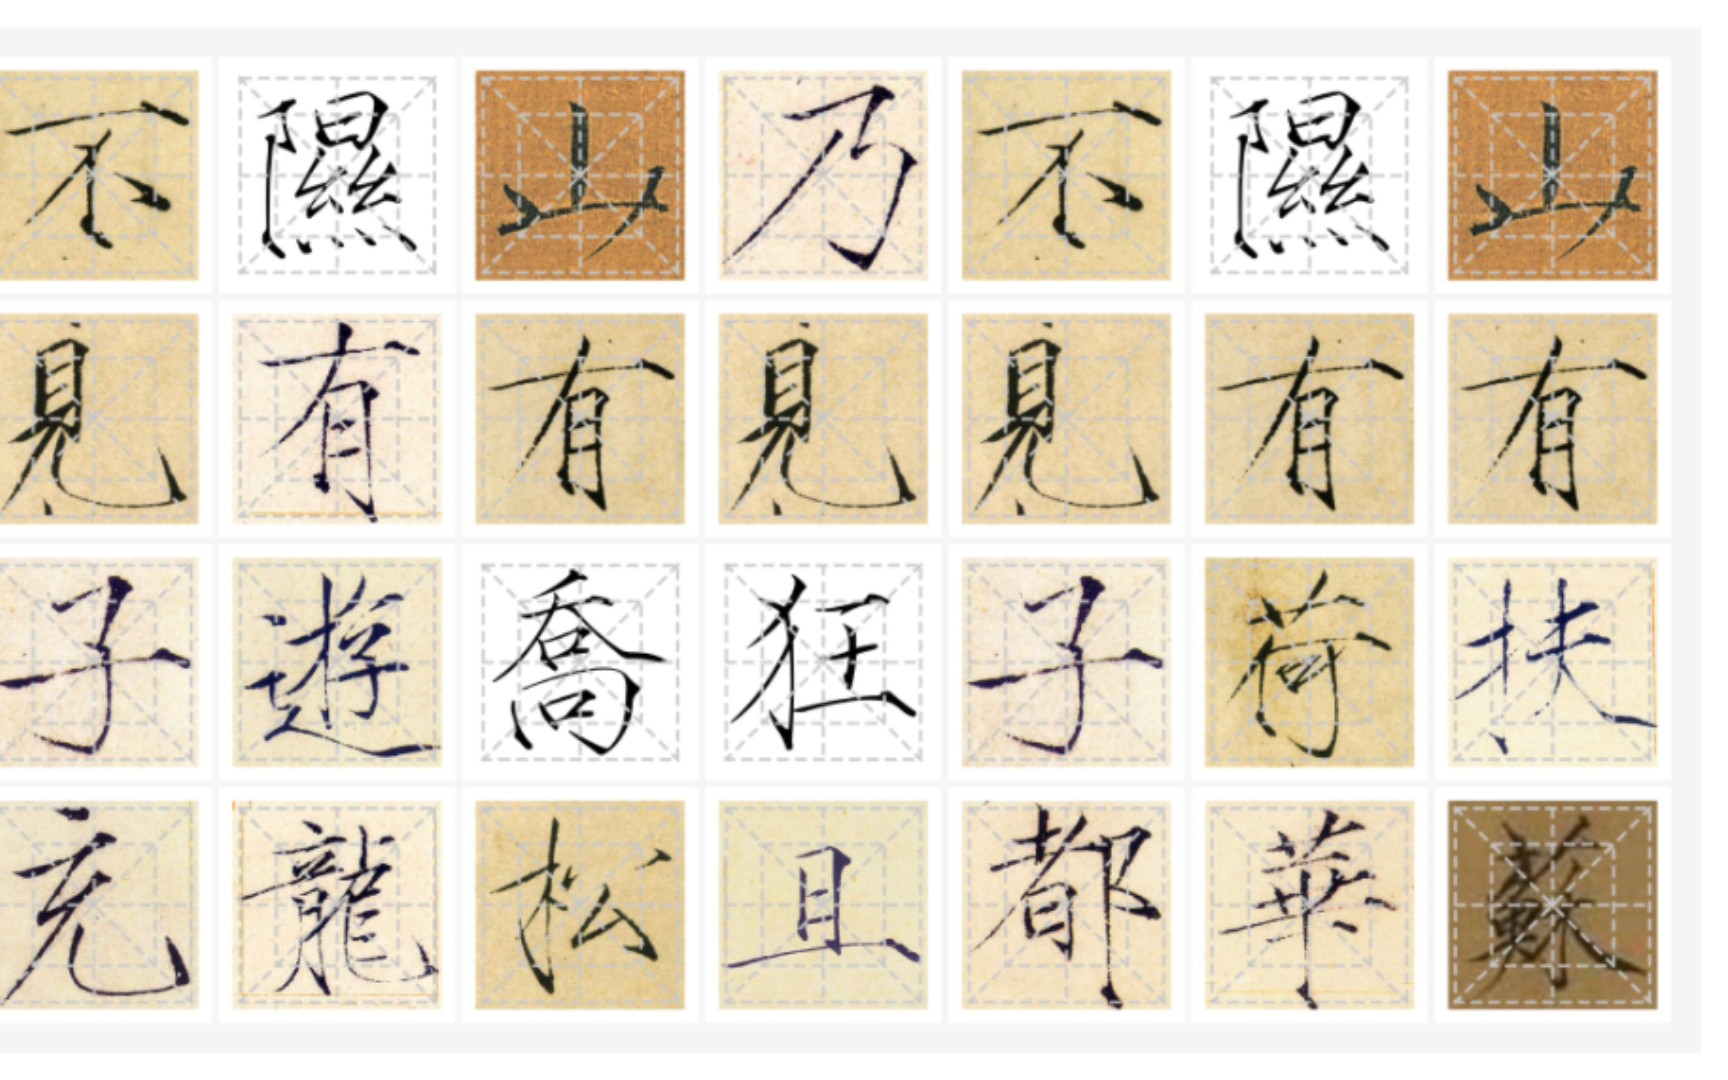 山有扶蘇
隰有荷華
不見子都
乃見狂且
山有喬松
隰有遊龍
不見子充